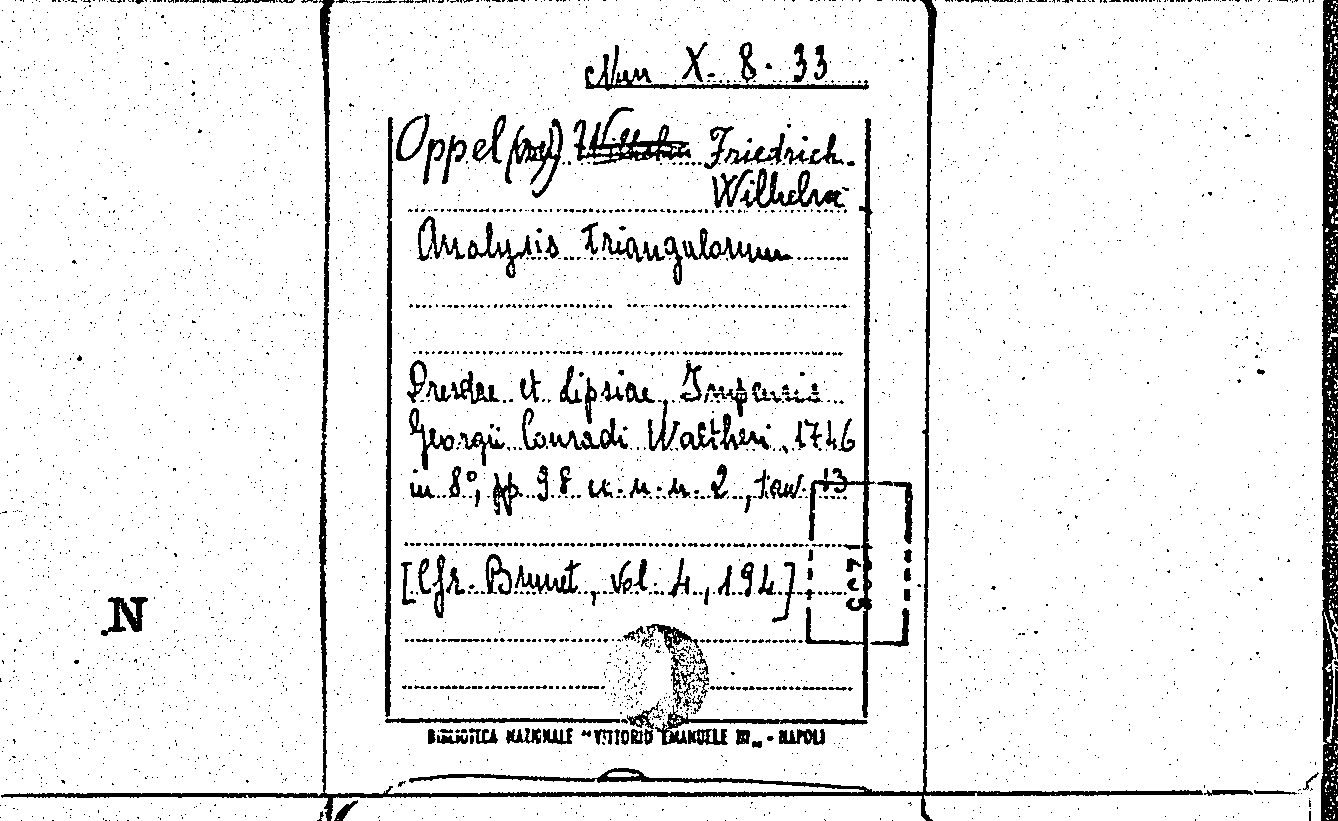 X. 8. 33
Oppel (von) Wilhelm Friedrich
Wilhelm
Analysis triangulorum
Dresdae et Lipsiae, Impensis
Georgii Conradi Waltheri, 1746
in 8°, pp. 98 n. n. 2, tav. 13
[Cfr. Brunet, vol. 4, 194]
N
BIBLIOTECA NAZIONALE "VITTORIO EMANUELE III„ - NAPOLI